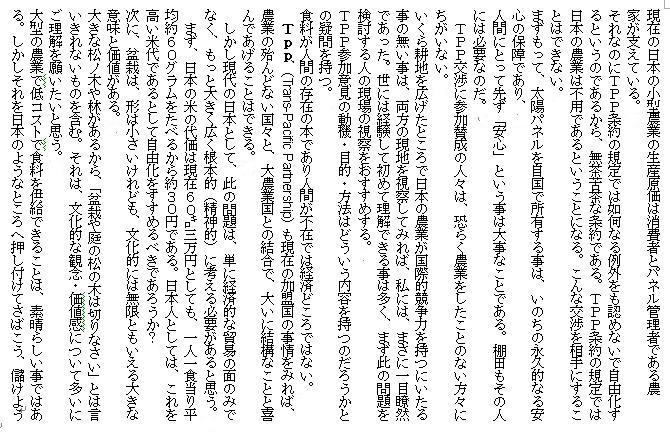 現在の日本の小型農業の生産原価は消費者とパネル管理者である農
家が支えている。
それなのにＴＰＰ条約の規定では如何なる例外をも認めないで自由化す
るというのであるから、無茶苦茶な条約である。ＴＰＰ条約の規定では
日本の農業は不用であるということになる。こんな交渉を相手にするこ
とはできない。
まずもって、太陽パネルを自国で所有する事は、いのちの永久的なる安
心の保障であり、
人間にとって先ず「安心」という事は大事なことである。棚田もその人
には必要なのだ。
ＴＰＰ交渉に参加賛成の人々は、恐らく農業をしたことのない方々に
ちがいない。
いくら耕地を広げたところで日本の農業が国際的競争力を持つにいたる
事の無い事は、両方の現地を視察してみれば、私には、まさに一目瞭然
であった。世には経験して初めて理解できる事は多く、まず此の問題を
検討する人の現場の視察をおすすめする。
ＴＰＰ参加意見の動機・目的・方法はどういう内容を持つのだろうかと
の疑問を持つ。
食料が人間の存在の本であり人間が不在では経済どころではない。
Ｔｐｐ、（Trans-Pacific Partnership）も現在の加盟国の事情をみれば、
農業の殆んどない国々と、大農業国との結合で、大いに結構なことと喜
んであげることはできる。
しかし現代の日本として、此の問題は、単に経済的な貿易の面のみで
なく、もっと大きく広く根本的（精神的）に考える必要があると思う。
まず、日本の米の代価は現在６０㌔二万円としても、一人一食当り平
均約６０グラムをたべるから約３０円である。日本人としては、これを
高い米代であるとして自由化をすすめるべきであろうか？
次に、盆栽は、形は小さいけれども、文化的には無限ともいえる大きな
意味と価値がある。
大きな松ノ木や林があるから、「盆栽や庭の松の木は切りなさい」とは言
いきれないものを含む。それは、文化的な観念・価値感について多いに
ご理解を願いたいと思う。
大型の農業で低コストで食料を供給できることは、素晴らしい事ではあ
る。しかしそれを日本のようなところへ押し付けてさばこう、儲けよう